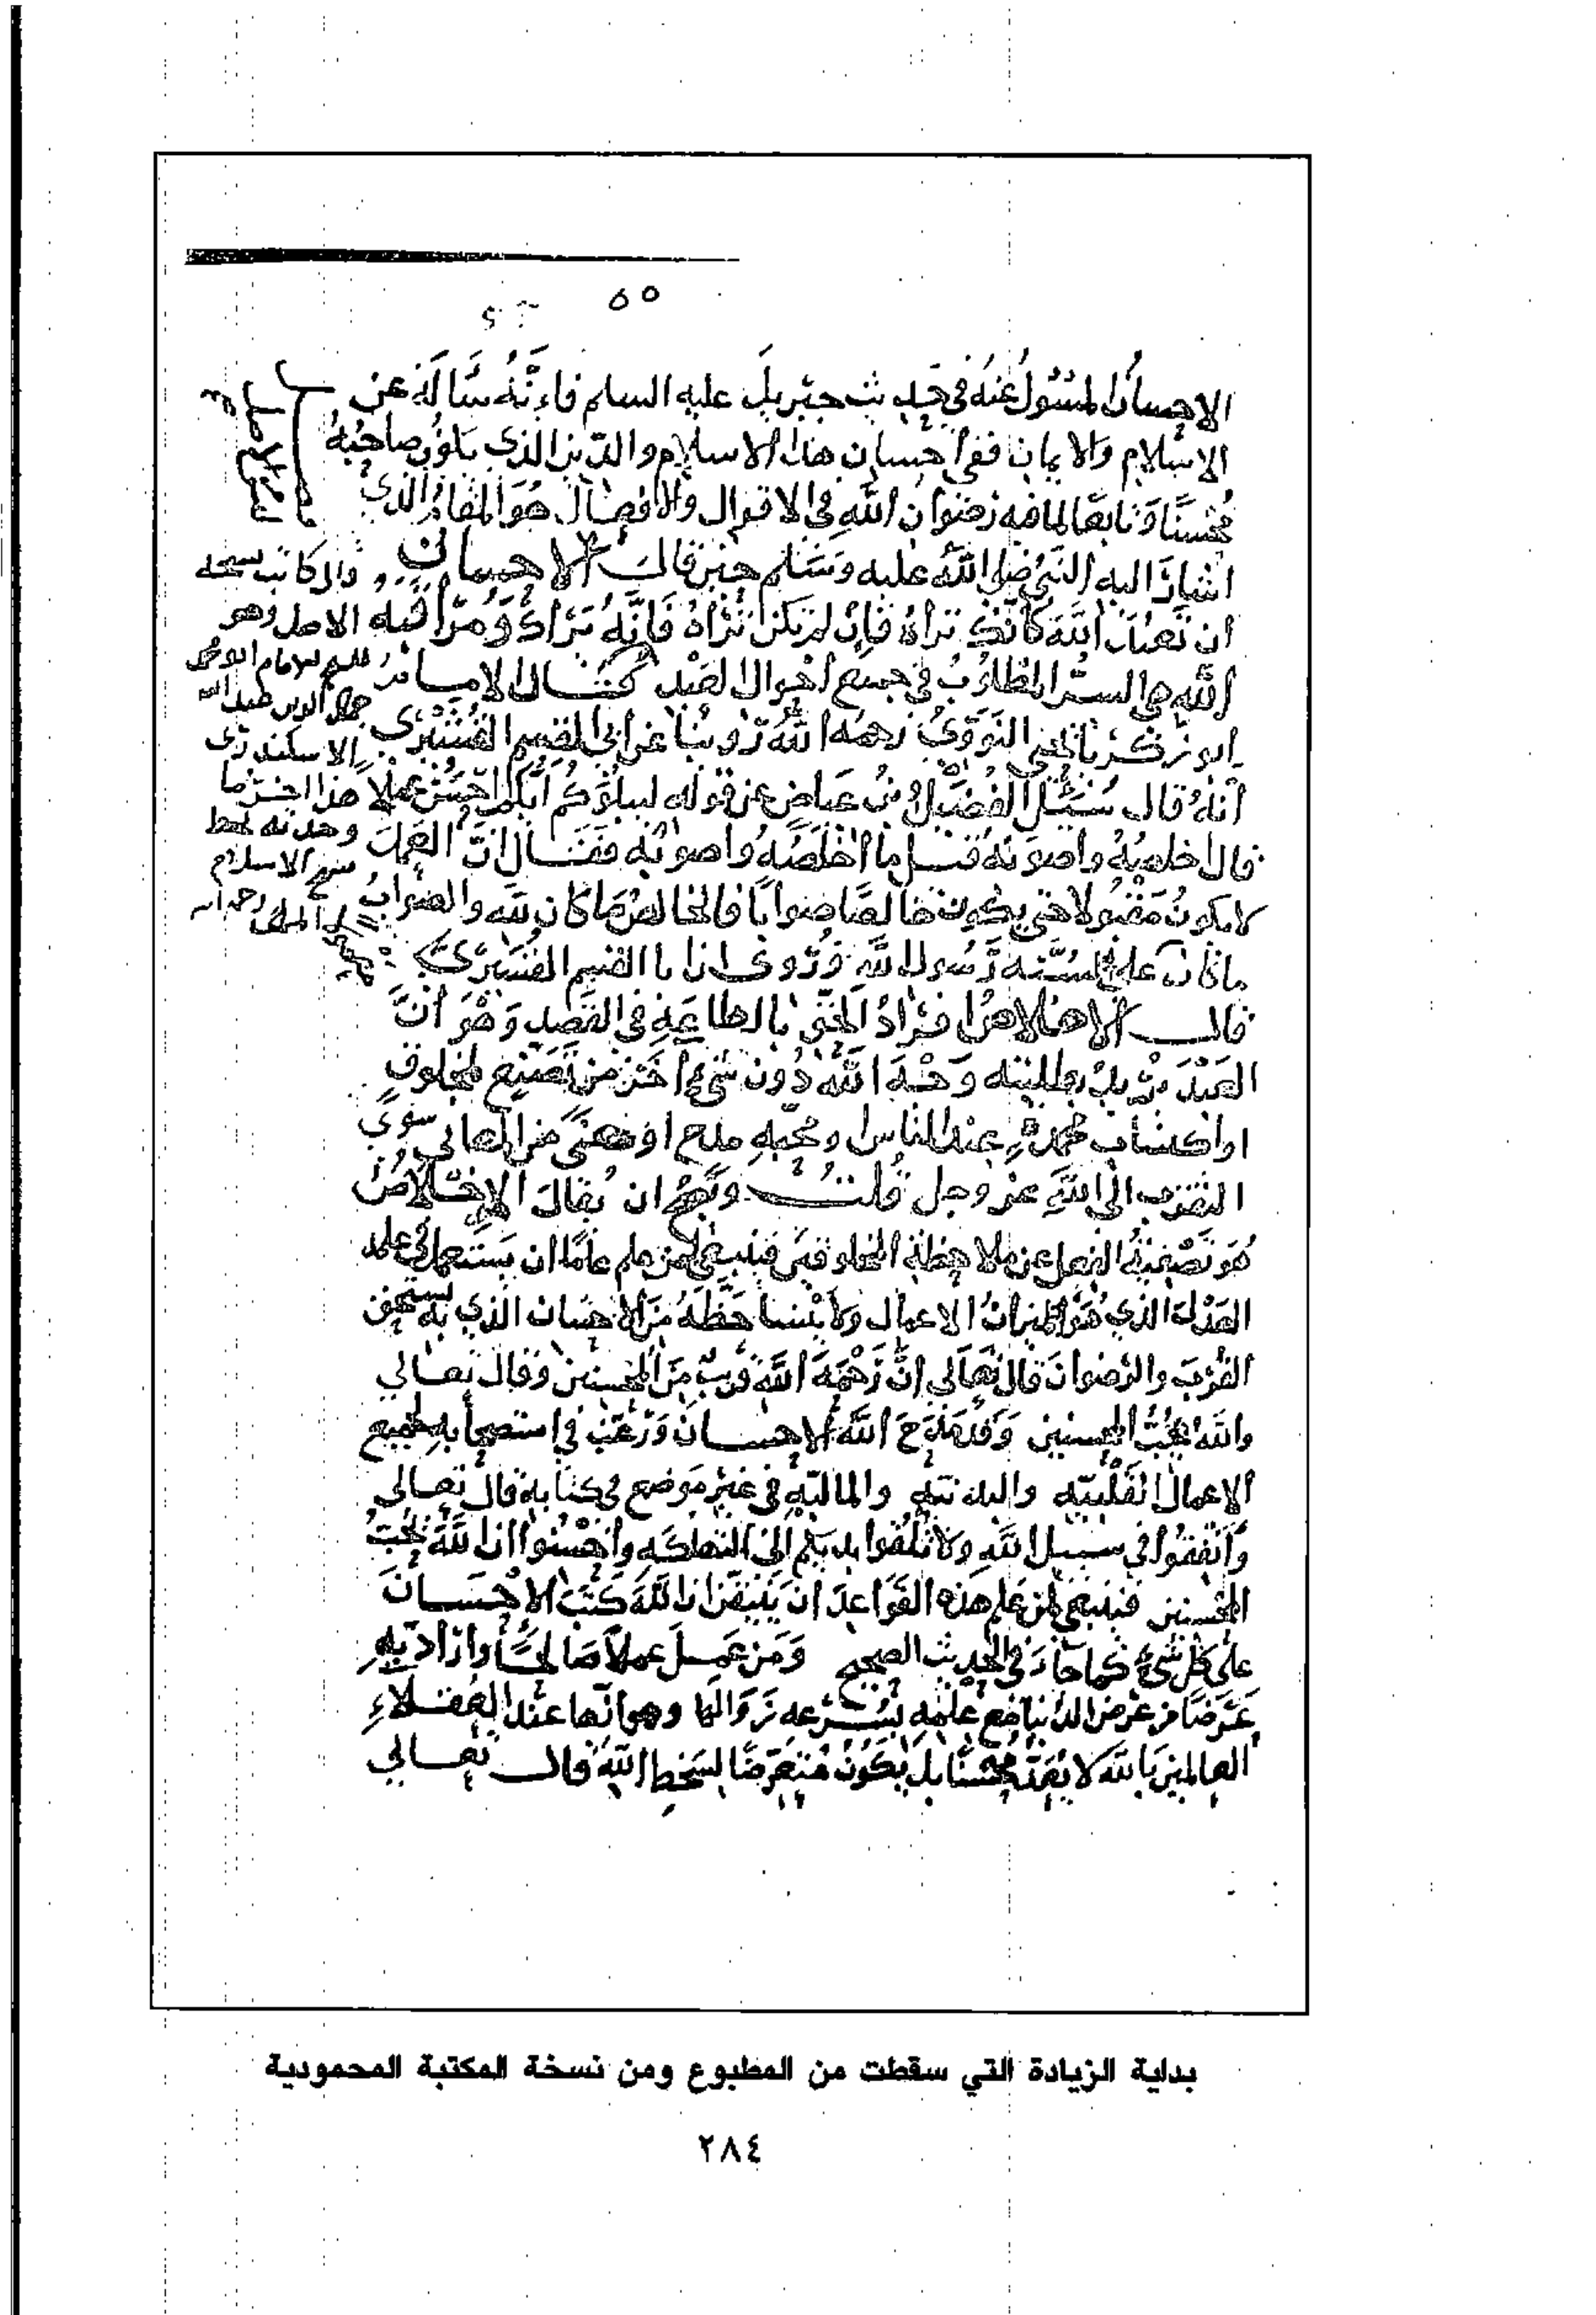 ٥٥
الاحسان المسئول عنه في حديث جبريل عليه السلم فانه سأله عن
الاسلام والايمان ففي احسان هذا الاسلام والدين الذي يكون صاحبه
محسنا وتابعا لما فيه رضوان الله في الاقوال والافعال هو المقام الذي
اشار اليه النبي صلى الله عليه وسلم حين قال الاحسان
ان تعبد الله كانك تراه فان لم تكن تراه فانه يراك ومراقبة
الله هي السر المطلوب في جميع احوال العبد كتب الامام
ابو زكريا يحيى النووي رحمه الله روينا عن ابي القسم القشيري
انه قال سئل الفضيل بن عياض عن قوله ليبلوكم ايكم احسن عملا
قال اخلصه واصوبه قيل ما اخلصه واصوبه فقال ان العمل
لا يكون مقبولا حتى يكون خالصا صوابا فالخالص ما كان لله والصواب
ما كان على سنة رسول الله وروى ان ابا القسم القشيري
قال الاخلاص افراد الحق بالطاعة في القصد وهو ان
العبد يريد بطاعته وجه الله دون شيء اخر من تصنع لمخلوق
او اكتساب محمدة عند الناس او محبة مدح او معنى من المعاني سوى
التقرب الى الله عز وجل قلت ويصح ان يقال الاخلاص
هو تصفية الفعل عن ملاحظة المخلوقين فينبغي لمن علم علما ان يستعمل في علمه
العدل الذي هو ميزان الاعمال ولا ينسا حظه من الاحسان الذي به يستحق
القرب والرضوان قال تعالى ان رحمة الله قريب من المحسنين وقال تعالى
والله يحب المحسنين وقد مدح الله الاحسان ورغب في استصحابه لجميع
الاعمال القلبية والبدنية والمالية في غير موضع في كتابه قال تعالى
وانفقوا في سبيل الله ولا تلقوا بايديكم الى التهلكة واحسنوا ان الله يحب
المحسنين فينبغي لمن علم هذه القواعد ان يتيقن ان الله كتب الاحسان
على كل شيء كما جاء في الحديث الصحيح ومن عمل عملا صالحا واراد به
عرضا من عرض الدنيا مع علمه بسرعة زوالها وهوانها عند العقلاء
العالمين بالله لا يعد محسنا بل يكون متعرضا لسخط الله قال تعالى
قال كاتب نسخه
الاصل وهو
الشيخ الامام ابو محمد
جمال الدين عبد الله
الاسكندري
هذا اخر ما
وجدته بخط
شيخ الاسلام
رحمه الله
بداية الزيادة التي سقطت من المطبوع ومن نسخة المكتبة المحمودية
٢٨٤